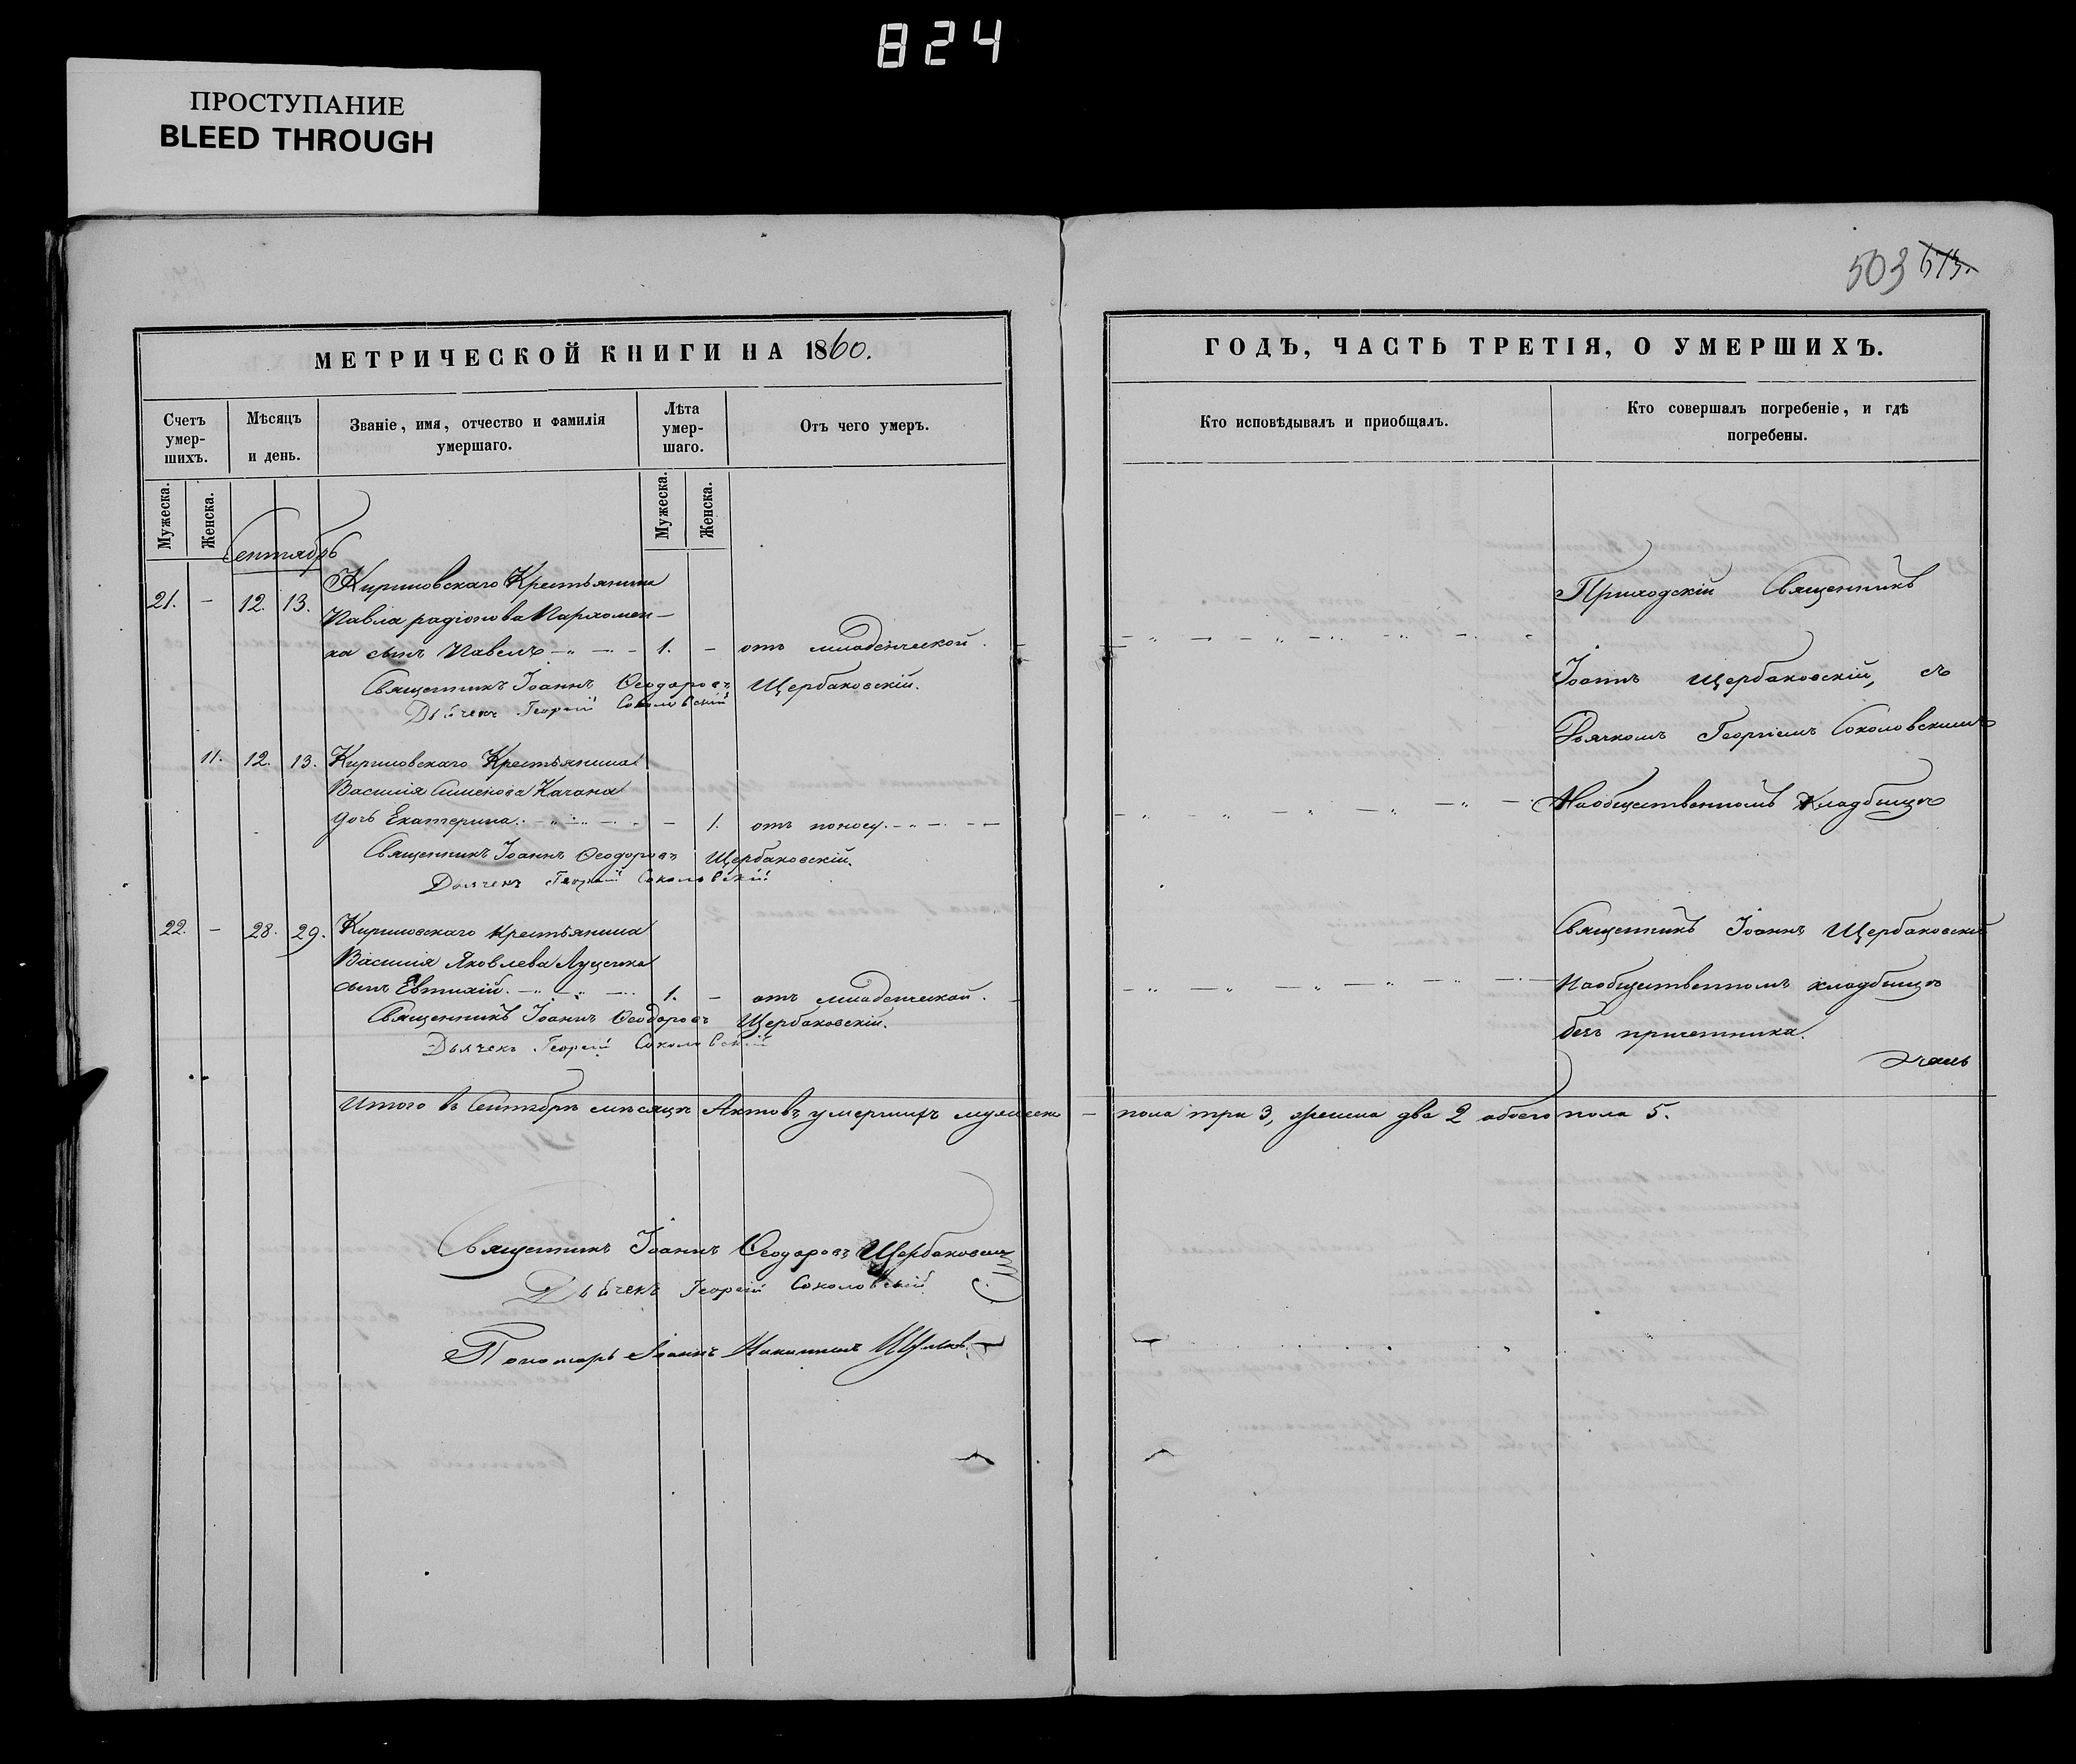 824
ПРОСТУПАНИЕ
BLEED THROUGH
503 613.
МЕТРИЧЕСКОЙ КНИГИ НА 1860.
ГОДЪ, ЧАСТЬ ТРЕТІЯ, О УМЕРШИХЪ.
Счетъ умер-шихъ.
Мѣсяцъ и день.
Званіе, имя, отчество и фамилія умершаго.
Лѣта умер-шаго.
Отъ чего умеръ.
Кто исповѣдывалъ и приобщалъ.
Кто совершалъ погребеніе, и гдѣ погребены.
Мужеска.
Женска.
Мужеска.
Женска.
Сентябрь
21. – 12. 13. Кириловскаго Крестьянина
Павла радіонова Пархомен–
ка сынъ Павелъ 1. – отъ младенческой.
Священникъ Іоаннъ Ѳеодоровъ Щербаковскій.
Дьячекъ Георгій Соколовскій
Приходскій Священникъ
Іоаннъ Щербаковскій, съ
Дьячкомъ Георгіемъ Соколовскимъ
11. 12. 13. Кириловскаго Крестьянина
Василія Симонова Качана
дочь Екатерина. – 1. отъ поносу.
Священникъ Іоаннъ Ѳеодоровъ Щербаковскій.
Дьячекъ Георгій Соколовскій
Наобщественномъ Кладбищѣ
22. – 28. 29. Кириловскаго Крестьянина
Василія Яковлева Луценка
сынъ Евтихій. 1. – отъ младенческой.
Священникъ Іоаннъ Ѳеодоровъ Щербаковскій.
Дьячекъ Георгій Соколовскій
Священникъ Іоаннъ Щербаковскій
Наобщественномъ кладбищѣ
безъ причетника.
Итого въ Сентябрѣ мѣсяцѣ Актовъ умершихъ мужеска – пола три 3, женска два 2 обоего пола 5.
Священникъ Іоаннъ Ѳеодоровъ Щербаковскій
Дьячекъ Георгій Соколовскій
Пономарь Іоаннъ